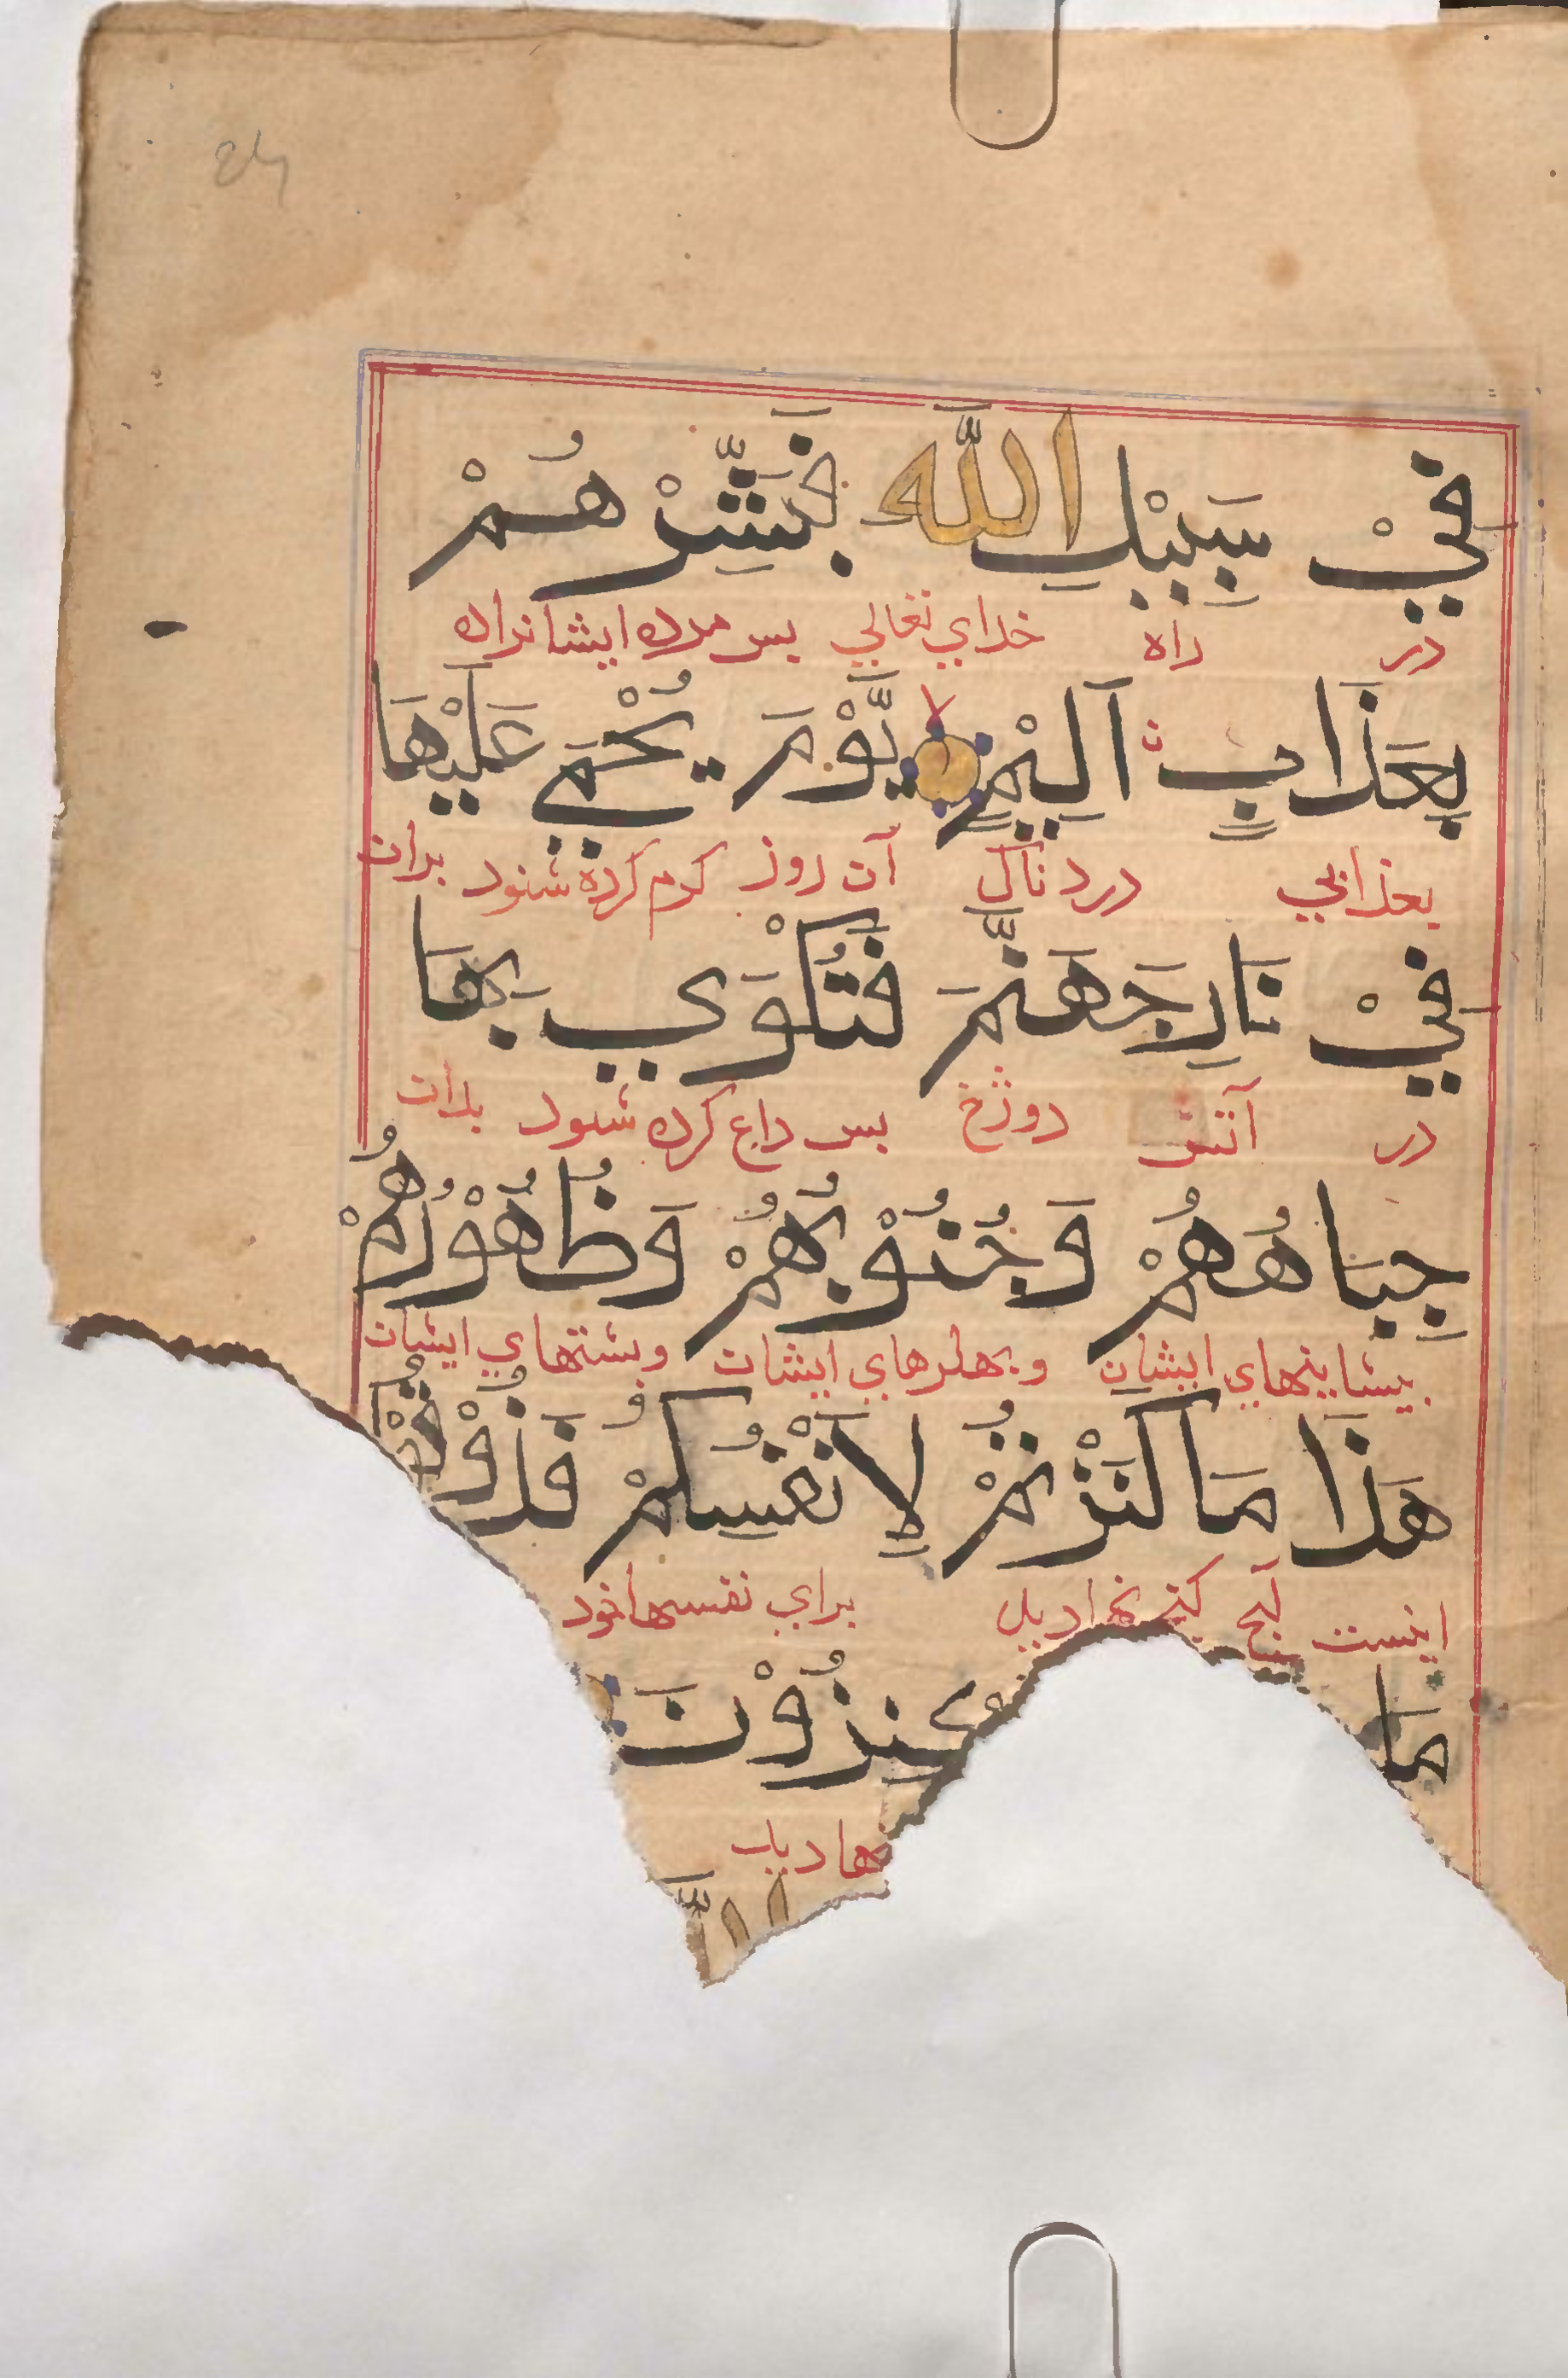 فِيْ سَبِيْلِ اللّٰهِ فَبَشِّرْهُمْ
در راه خدای تعالی بس مرده ایشانراه
بِعَذَابٍ اَلِيْمٍ يَّوْمَ يُحْمٰي عَلَيْهَا
بعذابی دردناک آن روز کرم کرده شود بران
فِيْ نَارِ جَهَنَّمَ فَتُكْوٰي بِهَا
در آتش دوزخ بس داغ کرده شود بدان
جِبَاهُهُمْ وَجُنُوْبُهُمْ وَظُهُوْرُهُمْ
بیشاینهای ایشان وبهلوهای ایشان وبشتهای ایشان
هٰذَا مَا كَنَزْتُمْ لِاَنْفُسِكُمْ فَذُوْقُوْا
اینست آنچ کنج نهادید برای نفسهاخود
مَا تَكْنِزُوْنَ
هادید